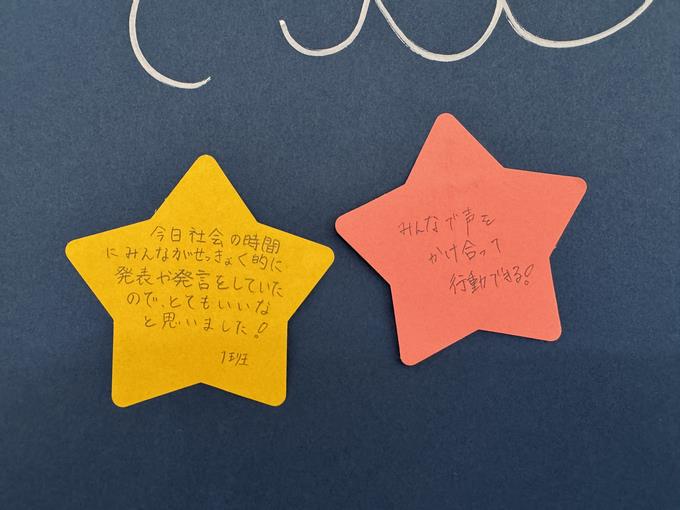 今日社会の時間
にみんながせっきょく的に
発表や発言をしていた
ので、とてもいいな
と思いました!
1班
みんなで声を
かけ合って
行動できる!